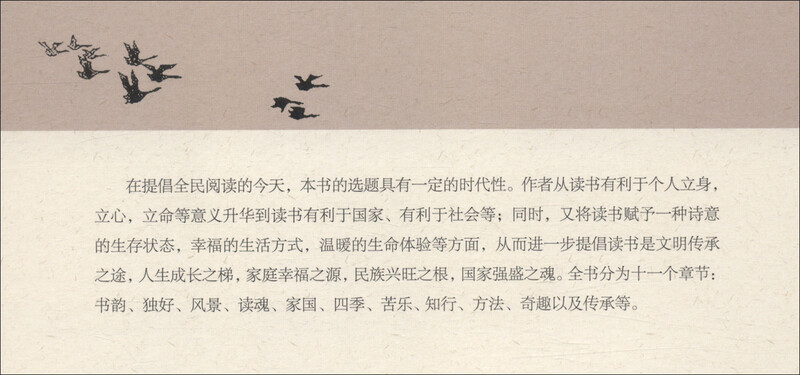 在提倡全民阅读的今天，本书的选题具有一定的时代性。作者从读书有利于个人立身，
立心，立命等意义升华到读书有利于国家、有利于社会等；同时，又将读书赋予一种诗意
的生存状态，幸福的生活方式，温暖的生命体验等方面，从而进一步提倡读书是文明传承
之途，人生成长之梯，家庭幸福之源，民族兴旺之根，国家强盛之魂。全书分为十一个章节：
书韵、独好、风景、读魂、家国、四季、苦乐、知行、方法、奇趣以及传承等。